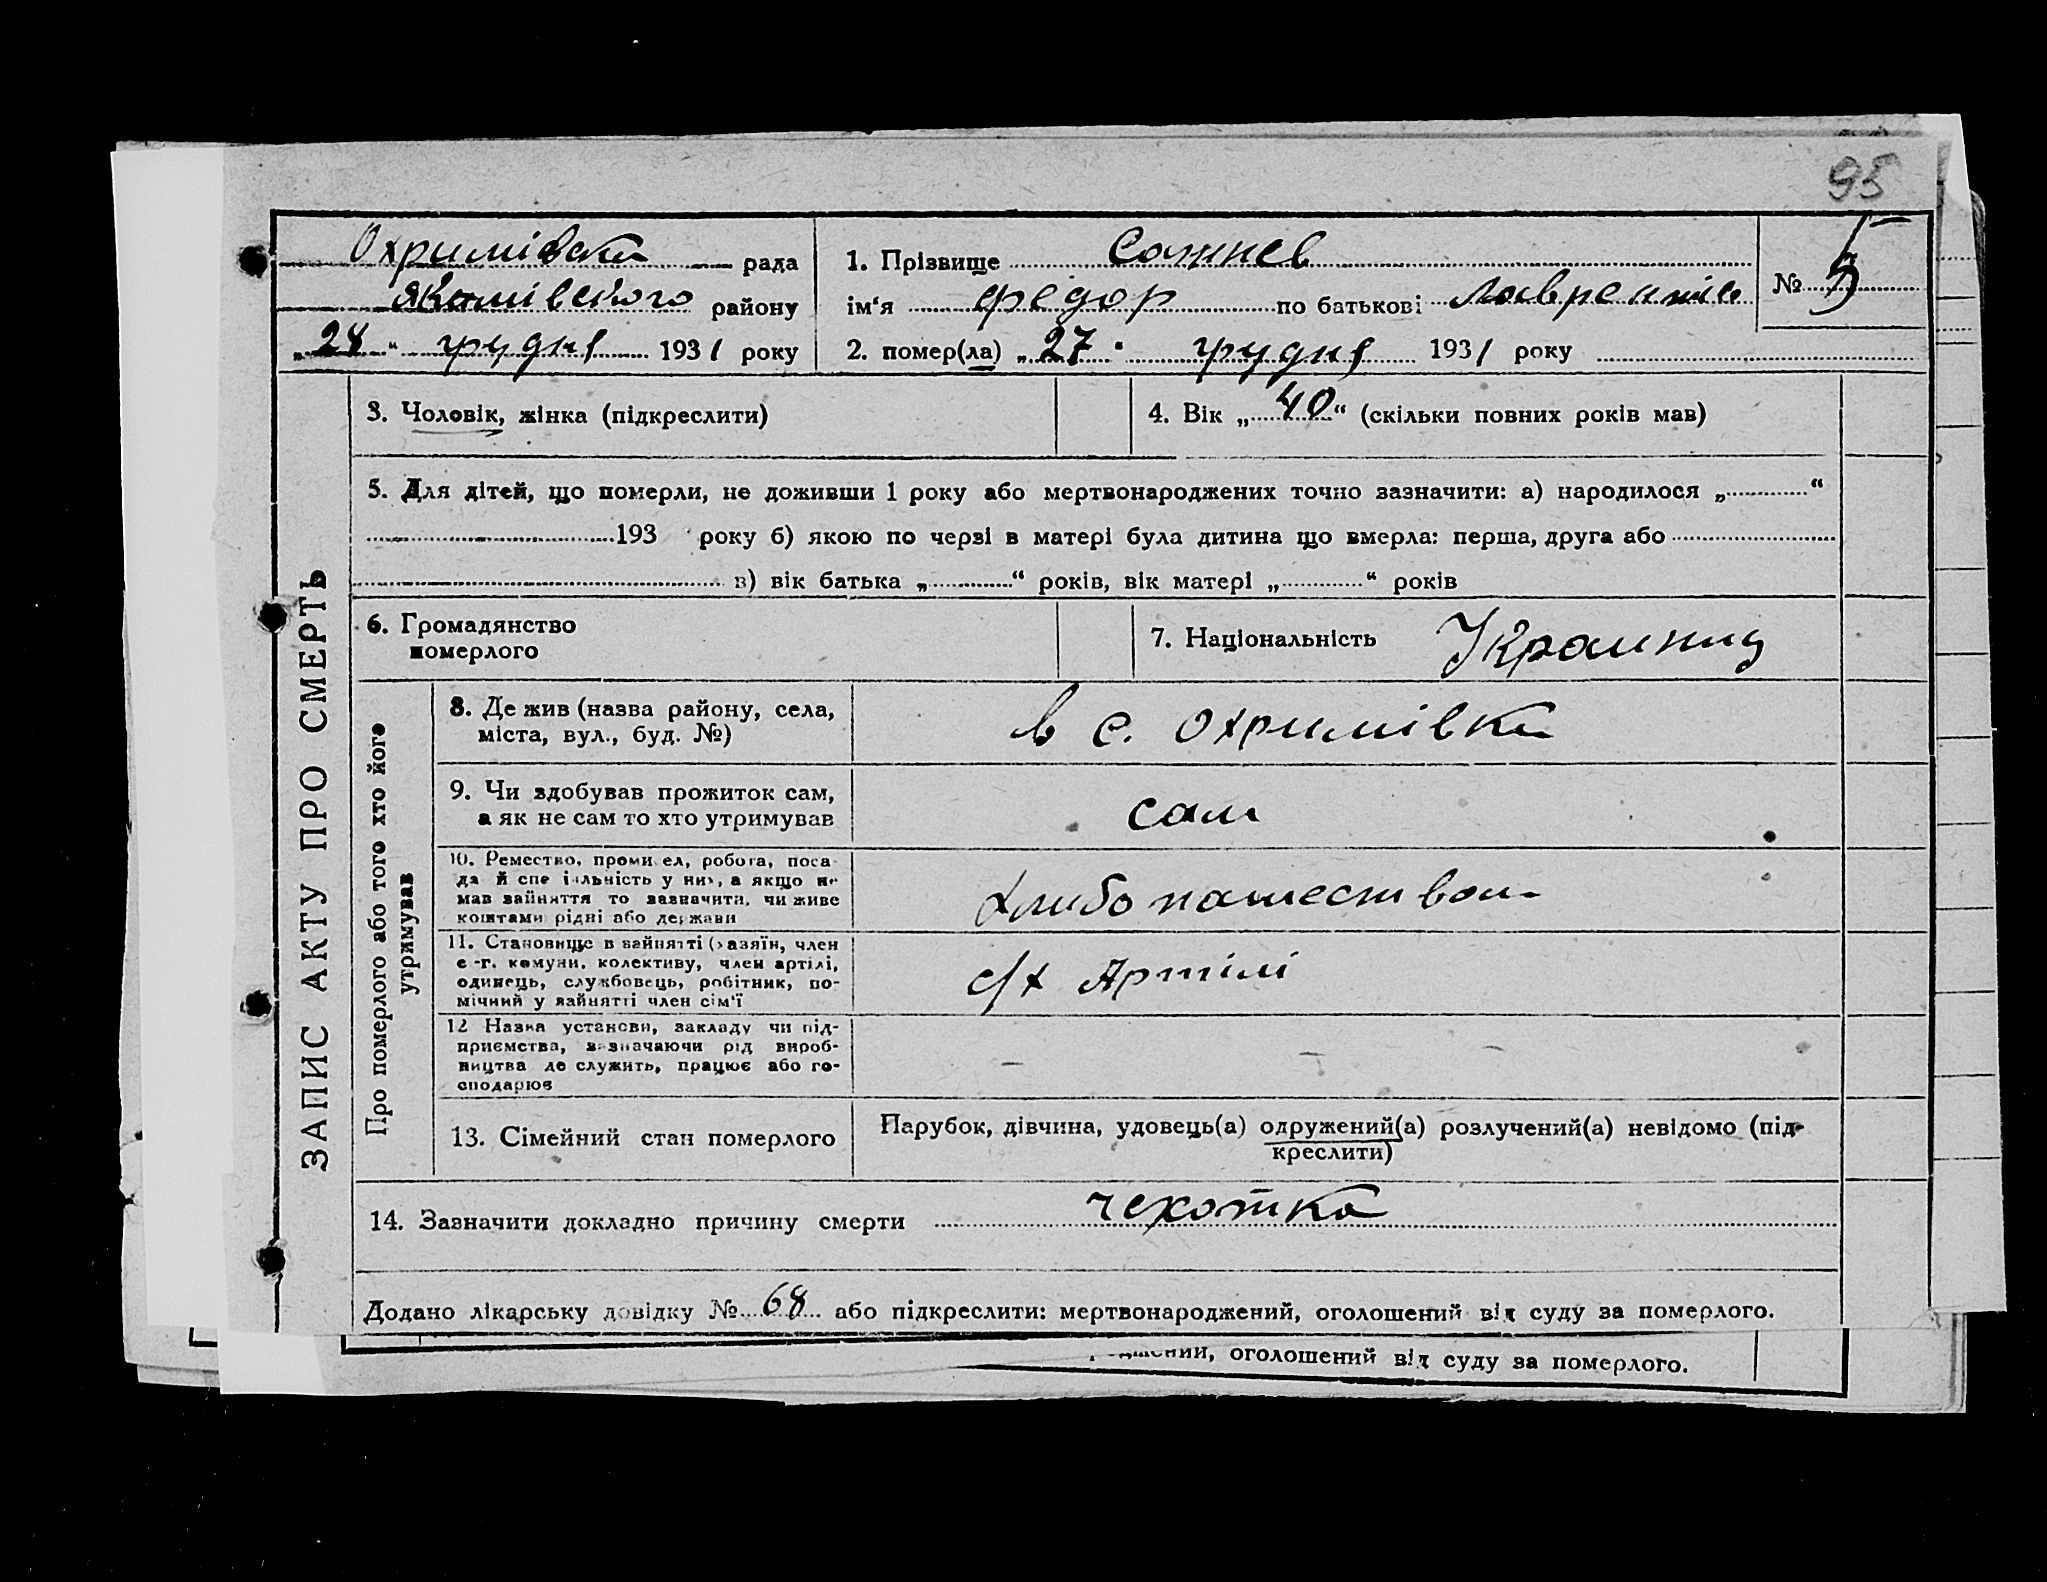 95
Охримівска рада
Якимівського району
„28“ грудня 1931 року
1. Прізвище Сажнев
ім‘я Федор по батькові Лаврентіе
2. помер(ла) „27“ грудня 1931 року
№ 5
3. Чоловік, жінка (підкреслити)
4. Вік „40“ (скільки повних років мав)
5. Для дітей, що померли, не доживши 1 року або мертвонароджених точно зазначити: а) народилося „ “
193 року б) якою по черзі в матері була дитина що вмерла: перша, друга або
в) вік батька „ “ років, вік матері „ “ років
6. Громадянство
померлого
7. Національність Україниц
ЗАПИС АКТУ ПРО СМЕРТЬ
Про померлого або того хто його
утримував
8. Де жив (назва району, села,
міста, вул., буд. №)
в с. Охримівка
9. Чи здобував прожиток сам,
а як не сам то хто утримував
сам
10. Ремество, промисел, робота, поса-
да й спеціяльність у них, а якщо не
мав зайняття то зазначити, чи живе
коштами рідні або держави
хлибопашеством
11. Становище в зайнятті (хазяїн, член
с.-г. комуни, колективу, член артілі,
одинець, службовець, робітник, по-
мічний у зайнятті член сім‘ї
с/х Артілі
12 Назва установи, закладу чи під-
приємства, зазначаючи рід вироб-
ництва де служить, працює або го-
сподарює
– – –
13. Сімейний стан померлого
Парубок, дівчина, удовець(а) одружений(а) розлучений(а) невідомо (під-
креслити)
14. Зазначити докладно причину смерти чехотка
Додано лікарську довідку № 68 або підкреслити: мертвонароджений, оголошений від суду за померлого.
оголошений від суду за померлого.